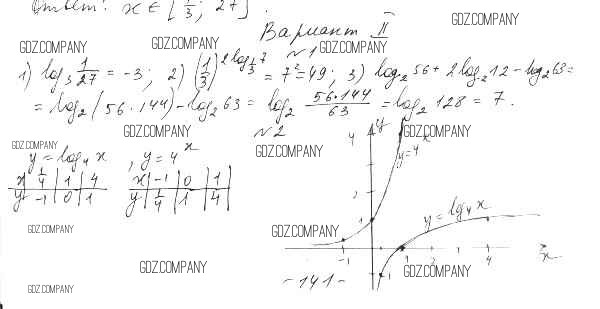 Ответ: x ∈ [1/3; 27].
GDZ.COMPANY
Вариант II
GDZ.COMPANY GDZ.COMPANY GDZ.COMPANY
№1
1) log₃ 1/27 = -3; 2) (1/3)^(2 log_(1/3) 7) = 7² = 49; 3) log₂ 56 + 2 log₂ 12 - log₂ 63 =
= log₂ (56 · 144) - log₂ 63 = log₂ 56·144/63 = log₂ 128 = 7.
GDZ.COMPANY №2 GDZ.COMPANY
GDZ.COMPANY GDZ.COMPANY
y = log₄ x , y = 4^x
x | 1/4 | 1 | 4
y | -1 | 0 | 1
x | -1 | 0 | 1
y | 1/4 | 1 | 4
y
4
y = 4^x
2
1
y = log₄ x
GDZ.COMPANY GDZ.COMPANY
-1 1 2 4 x
-1
GDZ.COMPANY GDZ.COMPANY
- 141 -
GDZ.COMPANY